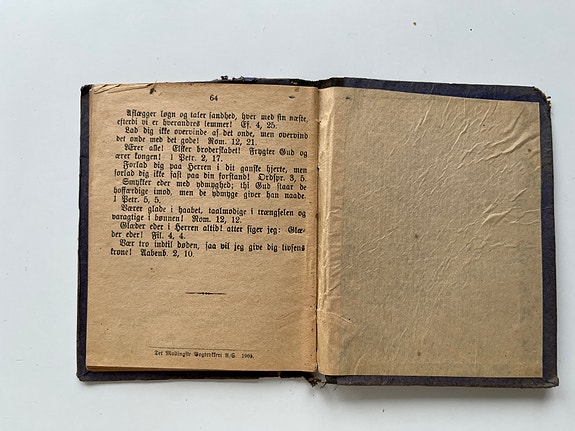 64
Aflægger løgn og taler sandhed, hver med sin næste,
efterdi vi er hverandres lemmer! Ef. 4, 25.
Lad dig ikke overvinde af det onde, men overvind
det onde med det gode! Rom. 12, 21.
Ærer alle! Elsker broderskabet! Frygter Gud og
ærer kongen! 1 Petr. 2, 17.
Forlad dig paa Herren i dit ganske hjerte, men
forlad dig ikke fast paa din forstand! Ordspr. 3, 5.
Smykker eder med ydmyghed; thi Gud staar de
hoffærdige imod, men de ydmyge giver han naade.
1 Petr. 5, 5.
Værer glade i haabet, taalmodige i trængselen og
varagtige i bønnen! Rom. 12, 12.
Glæder eder i Herren altid! atter siger jeg: Glæ-
der eder! Fil. 4, 4.
Vær tro indtil døden, saa vil jeg give dig livsens
krone! Aabenb. 2, 10.
Det Mallingske Bogtrykkeri A/S. 1904.